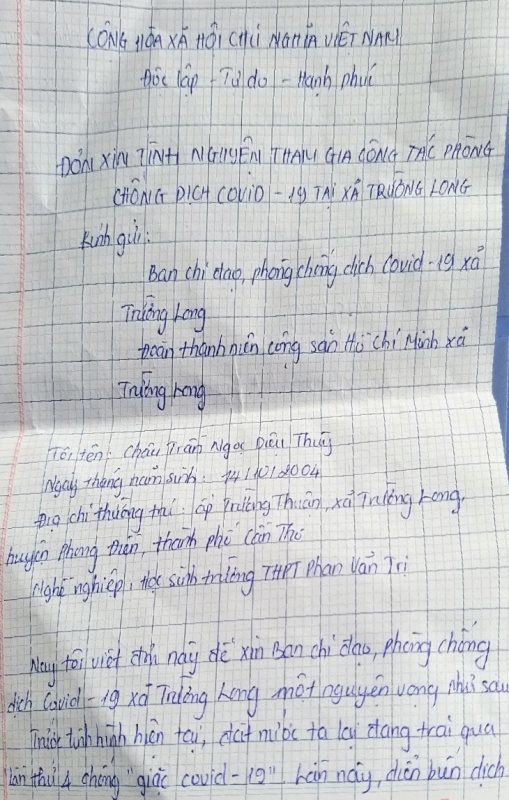 CỘNG HÒA XÃ HỘI CHỦ NGHĨA VIỆT NAM
Độc lập - Tự do - Hạnh phúc
ĐƠN XIN TÌNH NGUYỆN THAM GIA CÔNG TÁC PHÒNG
CHỐNG DỊCH COVID - 19 TẠI XÃ TRƯỜNG LONG
Kính gửi:
Ban chỉ đạo, phòng chống dịch Covid - 19 xã
Trường Long
Đoàn thanh niên cộng sản Hồ Chí Minh xã
Trường Long
Tôi tên: Châu Trần Ngọc Diệu Thuỳ
Ngày tháng năm sinh: 14/10/2004
Địa chỉ thường trú: ấp Trường Thuận, xã Trường Long,
huyện Phong Điền, thành phố Cần Thơ
Nghề nghiệp: Học sinh trường THPT Phan Văn Trị
Nay tôi viết đơn này để xin Ban chỉ đạo, phòng chống
dịch Covid - 19 xã Trường Long một nguyện vọng như sau
Trước tình hình hiện tại, đất nước ta lại đang trải qua
lần thứ 4 chống "giặc covid - 19". Lần này, diễn biến dịch